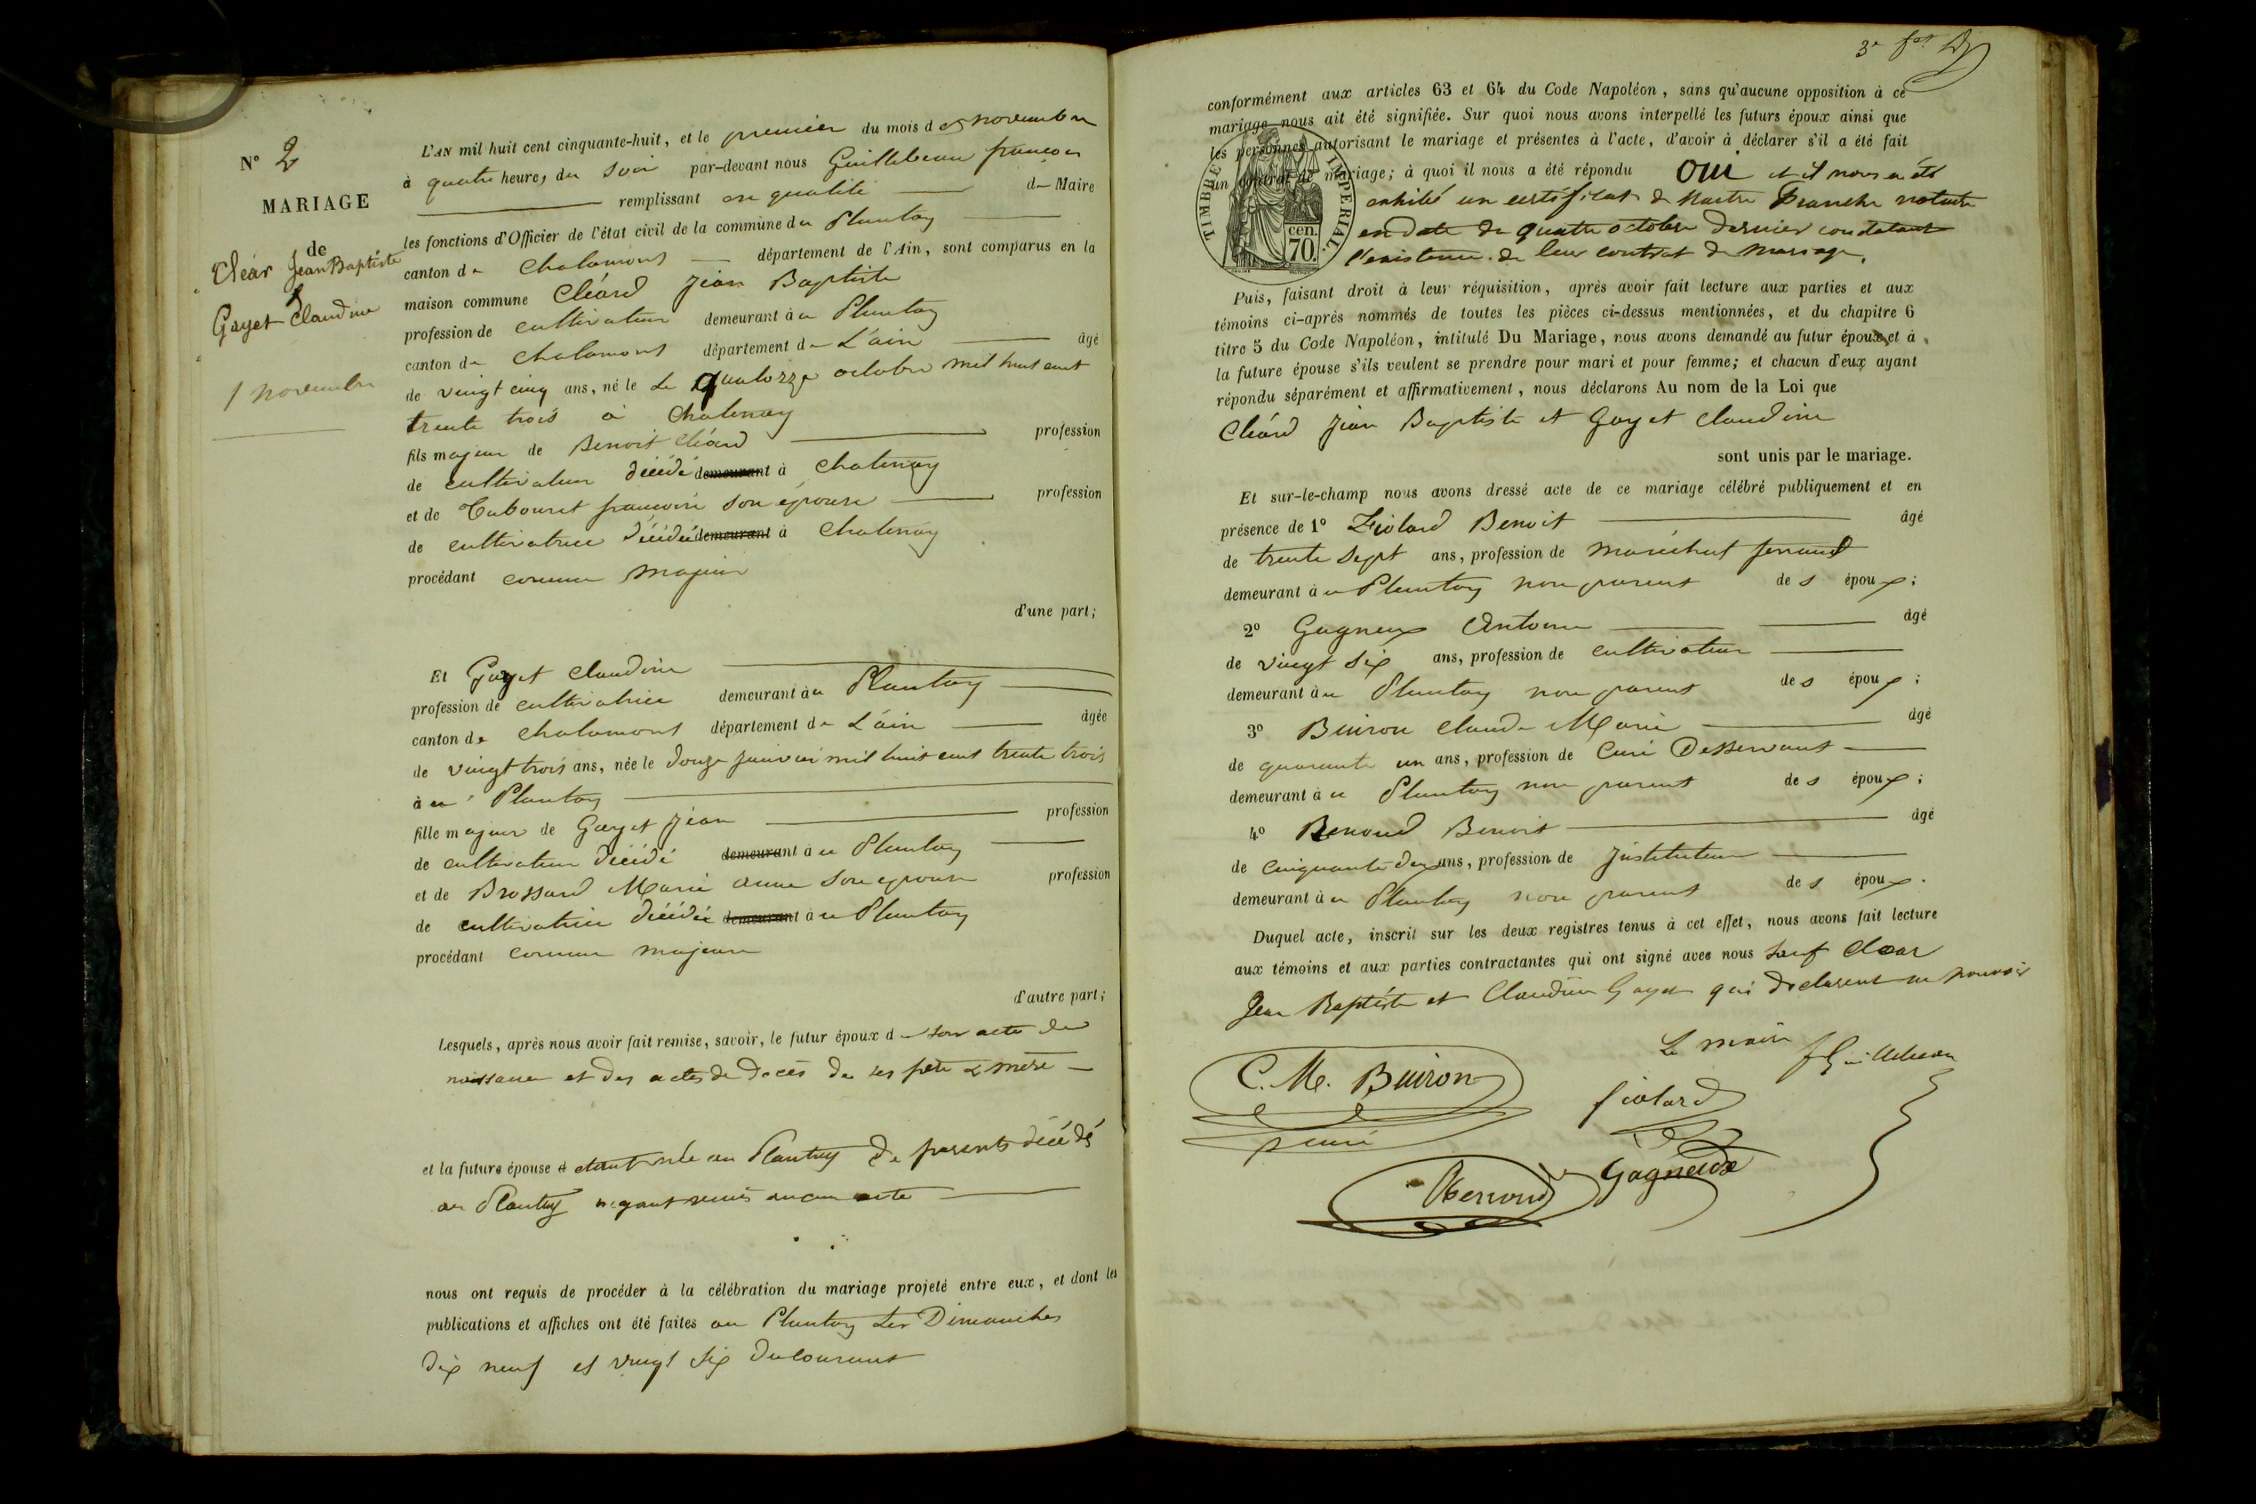 N° 2
MARIAGE
de
Cléar Jean Baptiste
&
Gayet Claudine
1 novembre
L'AN mil huit cent cinquante-huit, et le premier du mois de novembre
à quatre heures du soir par-devant nous Guillebeau françois
remplissant en qualité de Maire
les fonctions d'Officier de l'état civil de la commune du Plantay
canton de Chalamont département de l'Ain, sont comparus en la
maison commune Cléard Jean Baptiste
profession de cultivateur demeurant à u Plantay
canton de Chalamont département de L'ain âgé
de vingt cinq ans, né le Le quatorze octobre mil huit cent
trente trois à Chatenay
fils majeur de Benoit Cléard profession
de cultivateur décédé demeurant à Chatenay
et de Tabouret françoise son épouse profession
de cultivatrice décédée demeurant à Chatenay
procédant comme majeur
d'une part;
Et Gayet Claudine
profession de cultivatrice demeurant à u Plantay
canton de Chalamont département de L'ain âgée
de vingt trois ans, née le douze janvier mil huit cent trente trois
à u Plantay
fille majeure de Gayet Jean profession
de cultivateur décédé demeurant à u Plantay
et de Brossard Marie anne son epouse profession
de cultivatrice décédée demeurant à u Plantay
procédant comme majeure
d'autre part;
Lesquels, après nous avoir fait remise, savoir, le futur époux de son acte de
naissance et des actes de décès de ses père & mère
et la future épouse étant née au Plantay de parents décédés
au Plantay n'ayant remis aucun acte
nous ont requis de procéder à la célébration du mariage projeté entre eux, et dont les
publications et affiches ont été faites au Plantay Les Dimanches
dix neuf et vingt six du courant
3e
conformément aux articles 63 et 64 du Code Napoléon, sans qu'aucune opposition à ce
mariage nous ait été signifiée. Sur quoi nous avons interpellé les futurs époux ainsi que
les personnes autorisant le mariage et présentes à l'acte, d'avoir à déclarer s'il a été fait
un contrat de mariage; à quoi il nous a été répondu Oui et il nous a été
exhibé un certificat de Maitre Franche notaire
en date du quatre octobre dernier constatant
l'existence de leur contrat de mariage.
TIMBRE IMPERIAL.
cen.
70.
Puis, faisant droit à leur réquisition, après avoir fait lecture aux parties et aux
témoins ci-après nommés de toutes les pièces ci-dessus mentionnées, et du chapitre 6
titre 5 du Code Napoléon, intitulé Du Mariage, nous avons demandé au futur époux et à
la future épouse s'ils veulent se prendre pour mari et pour femme; et chacun d'eux ayant
répondu séparément et affirmativement, nous déclarons Au nom de la Loi que
Cléard Jean Baptiste et Gayet Claudine
sont unis par le mariage.
Et sur-le-champ nous avons dressé acte de ce mariage célébré publiquement et en
présence de 1° Fiolard Benoit âgé
de trente sept ans, profession de maréchal ferrand
demeurant à u Plantay non parent de s époux;
2° Gagneux Antoine âgé
de vingt six ans, profession de cultivateur
demeurant à u Plantay non parent de s époux;
3° Buiron Claude Marie âgé
de quarante un ans, profession de Curé Desservant
demeurant à u Plantay non parent de s époux;
4° Renoud Benoit âgé
de cinquante deux ans, profession de Instituteur
demeurant à u Plantay non parent de s époux.
Duquel acte, inscrit sur les deux registres tenus à cet effet, nous avons fait lecture
aux témoins et aux parties contractantes qui ont signé avec nous sauf Clear
Jean Baptiste et Claudine Gayet qui declarent ne pouvoir
Le maire
f Guillebeau
C. M. Buiron
curé
fiolard
Gagneux
Renoud